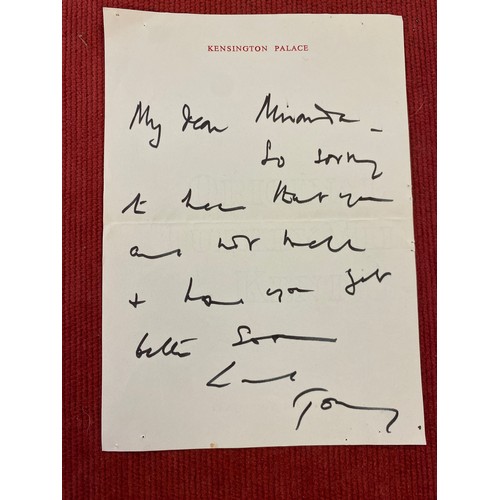 KENSINGTON PALACE
My dear Miranda -
So sorry
to hear that you
are not well
+ hope you get
better soon
Love
Tony